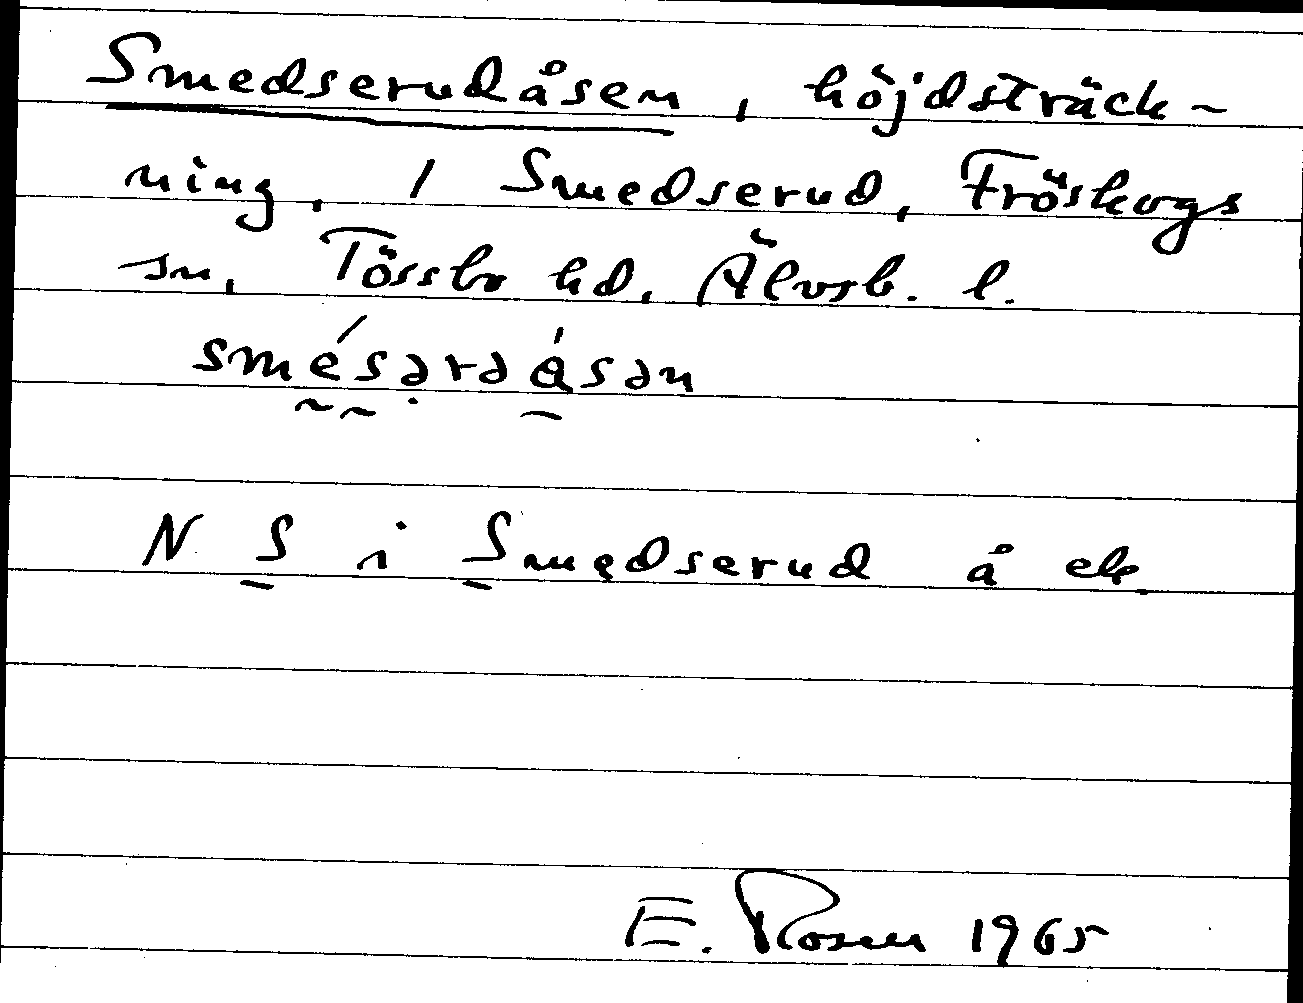 Smedserudåsen, höjdsträck-
ning, 1 Smedserud, Fröskogs
sn, Tössbo hd, Älvsb. l.
smésərəåsən
N S i Smedserud å ek
E. Rosen 1965